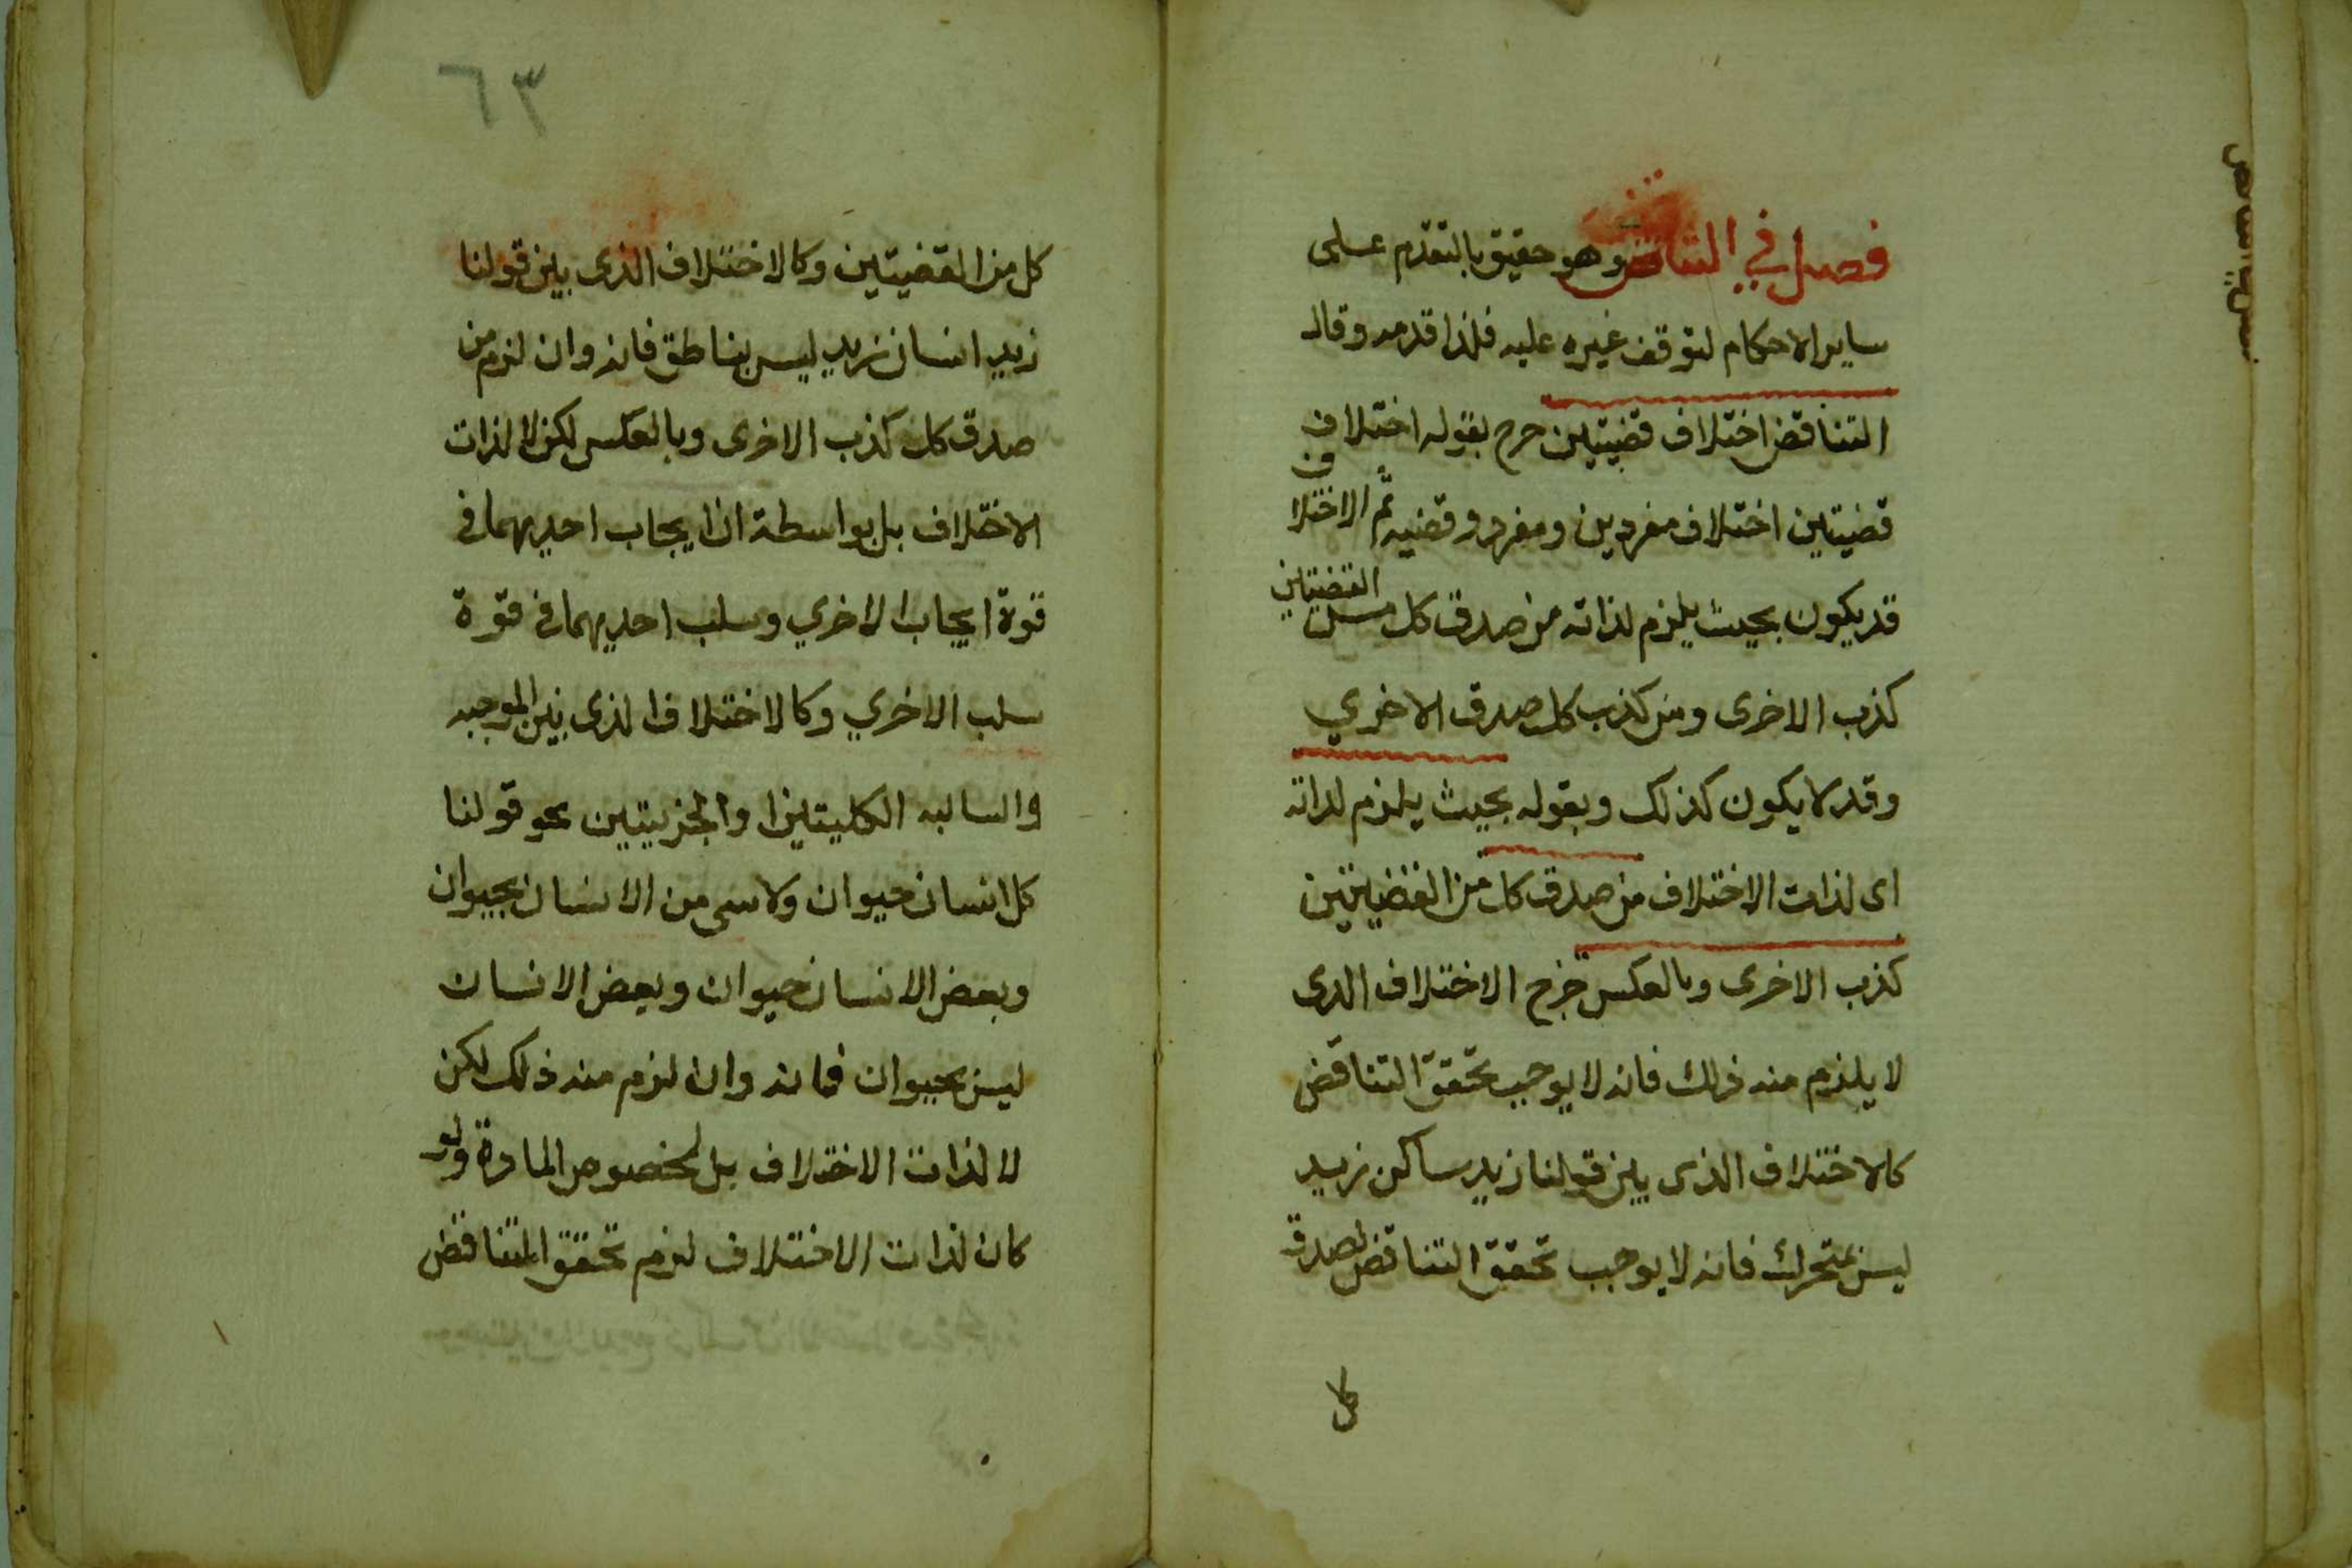 فصل في التناقض وهو حقيق بالتقدم على
ساير الاحكام لتوقف غيره عليه فلذا قدمه وقال
التناقض اختلاف قضيتين خرج بقوله اختلاف
قضيتين اختلاف مفردين ومفرد وقضيه ثم الاختلاف
قد يكون بحيث يلزم لذاته من صدق كل من القضيتين
كذب الاخرى ومن كذب كل صدق الاخري
وقد لا يكون كذلك وبقوله بحيث يلزم لذاته
اى لذات الاختلاف من صدق كل من القضيتين
كذب الاخرى وبالعكس خرج الاختلاف الذى
لا يلزم منه ذلك فانه لا يوجب تحقق التناقض
كالاختلاف الذى بين قولنا زيد ساكن زيد
ليس بمتحرك فانه لا يوجب تحقق التناقض لصدق
كل
٦٣
كل من القضيتين وكالاختلاف الذى بين قولنا
زيد انسان زيد ليس بناطق فانه وان لزم من
صدق كل كذب الاخرى وبالعكس لكن لا لذات
الاختلاف بل بواسطة ان ايجاب احديهما في
قوة ايجاب الاخري وسلب احديهما في قوة
سلب الاخري وكالاختلاف الذى بين الموجبه
والسالبه الكليتين او الجزييتين نحو قولنا
كل انسان حيوان ولا شى من الانسان بحيوان
وبعض الانسان حيوان وبعض الانسان
ليس بحيوان فانه وان لزم منه ذلك لكن
لا لذات الاختلاف بل لخصوص المادة ولو
كان لذات الاختلاف لزم تحقق التناقض